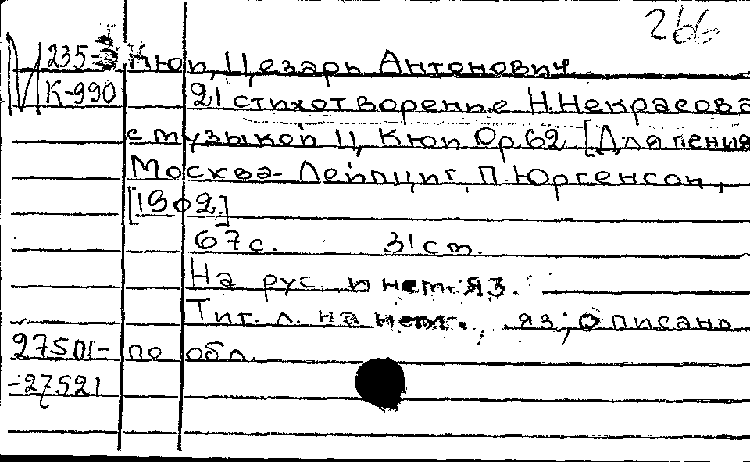 266
235-3 Кюи, Цезарь Антонович
К-990 21 стихотворение Н. Некрасова
с музыкой Ц. Кюи Op. 62 [Для пения
Москва-Лейпциг, П. Юргенсон,
[1902]
67 с. 31 см.
На рус. и нем. яз.
Тит. л. на нем. яз; описано
27501- по обл.
-27521